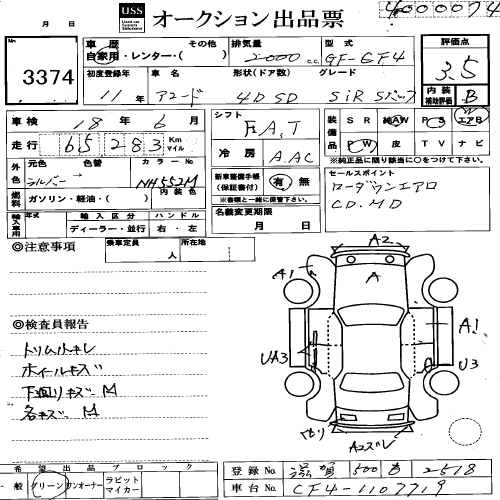 USS オークション出品票
4000074
月 日
No.
3374
車歴 その他 排気量 型式 評価点
自家用・レンター・( ) 2000 c.c. GF-CF4 3.5
初度登録年 車名 形状(ドア数) グレード
11年 アコード 4D SD SiR Sパック
内装補助評価 B
車検 18年 6月
走行 65283 Km マイル
シフト FAT
冷房 AAC
装備品 SR 純AW PS エアB
革 PW TV ナビ
※純正品に限り該当に○をつけて下さい
外色 元色 色替 カラーNo.
シルバー NH552M
内装色
燃料 ガソリン・軽油・( )
新車整備手帳(保証書付) 有 無
※書類と一緒に保管下さい。
セールスポイント
ローダウンエアロ
CD.MD
輸入車用 年式 輸入区分 ハンドル
ディーラー・並行 右・左
名義変更期限
月 日
◎注意事項
乗車定員 人 所在地
◎検査員報告
トリムキレ
ホイールキズ
下廻りキズ M
各キズ M
A2
A1
A
A1
UA3
U3
Aコスレ
希望出品ブロック
一般 グリーン ワンオーナー ラビットマイカー
登録No. 滋賀 500 2518
車台No. CF4-1107719